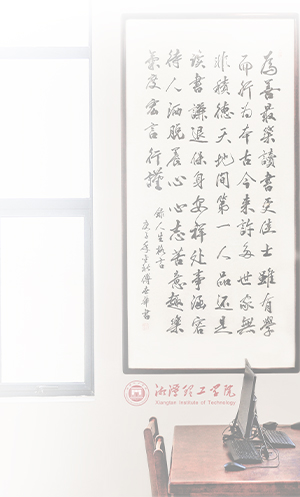 為善最樂讀書更佳士雖有學
而行為本古今來許多世家無
非積德天地間第一人品還是
讀書謙退保身安祥处事涵容
待人洒脱養心心志苦意趣樂
氣度宏言行謹
湘潭理工学院
Xiangtan Institute of Technology